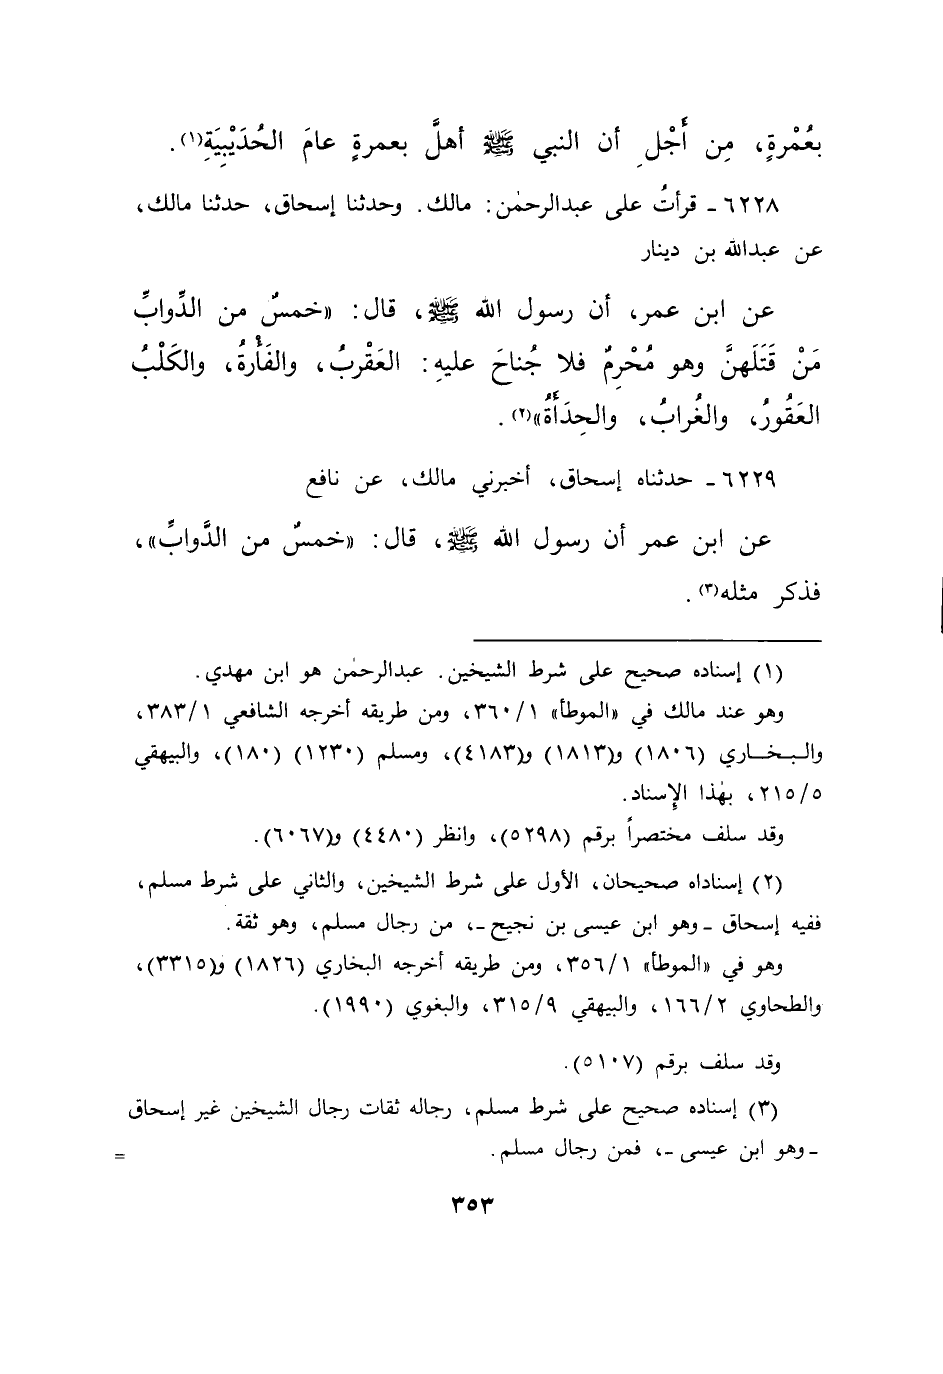 بعُمْرةٍ، مِن أَجْلِ أن النبي ﷺ أهلَّ بعمرةٍ عامَ الحُدَيْبِيَةِ(١).
٦٢٢٨ ـ قرأتُ على عبدالرحمٰن: مالك. وحدثنا إسحاق، حدثنا مالك،
عن عبدالله بن دينار
عن ابن عمر، أن رسول الله ﷺ، قال: «خمسٌ من الدِّوابِّ
مَنْ قَتَلَهنَّ وهو مُحْرِمٌ فلا جُناحَ عليهِ: العَقْربُ، والفَأْرةُ، والكَلْبُ
العَقُورُ، والغُرابُ، والحِدَأَةُ»(٢).
٦٢٢٩ ـ حدثناه إسحاق، أخبرني مالك، عن نافع
عن ابن عمر أن رسول الله ﷺ، قال: «خمسٌ من الدَّوابِّ»،
فذكر مثله(٣).
(١) إسناده صحيح على شرط الشيخين. عبدالرحمٰن هو ابن مهدي.
وهو عند مالك في «الموطأ» ٣٦٠/١، ومن طريقه أخرجه الشافعي ٣٨٣/١،
والبخاري (١٨٠٦) و(١٨١٣) و(٤١٨٣)، ومسلم (١٢٣٠) (١٨٠)، والبيهقي
٢١٥/٥، بهٰذا الإِسناد.
وقد سلف مختصراً برقم (٥٢٩٨)، وانظر (٤٤٨٠) و(٦٠٦٧).
(٢) إسناداه صحيحان، الأول على شرط الشيخين، والثاني على شرط مسلم،
ففيه إسحاق ـ وهو ابن عيسى بن نجيح ـ، من رجال مسلم، وهو ثقة.
وهو في «الموطأ» ٣٥٦/١، ومن طريقه أخرجه البخاري (١٨٢٦) و(٣٣١٥)،
والطحاوي ١٦٦/٢، والبيهقي ٣١٥/٩، والبغوي (١٩٩٠).
وقد سلف برقم (٥١٠٧).
(٣) إسناده صحيح على شرط مسلم، رجاله ثقات رجال الشيخين غير إسحاق
ـ وهو ابن عيسى ـ، فمن رجال مسلم. =
٣٥٣